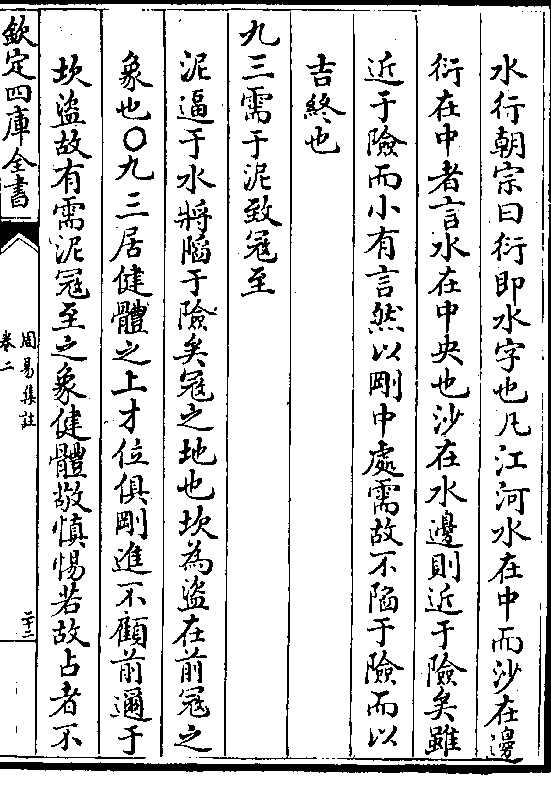 水行朝宗曰衍即水字也凡江河水在中而沙在邊
衍在中者言水在中央也沙在水邊則近于險矣雖
近于險而小有言然以剛中處需故不陷于險而以
吉終也
九三需于泥致冦至
泥逼于水將陷于險矣冦之地也坎為盜在前冦之
象也○九三居健體之上才位俱剛進不顧前邇于
坎盜故有需泥冦至之象健體敬慎惕若故占者不
欽定四庫全書
周易集註
卷二
二十二